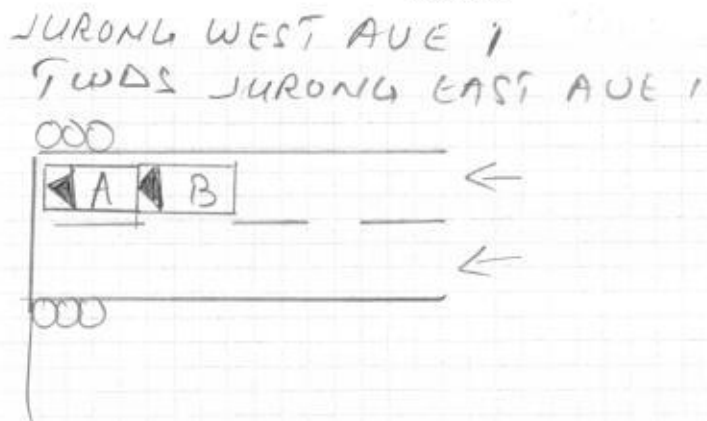 JURONG WEST AVE 1
TWDS JURONG EAST AVE 1
A B